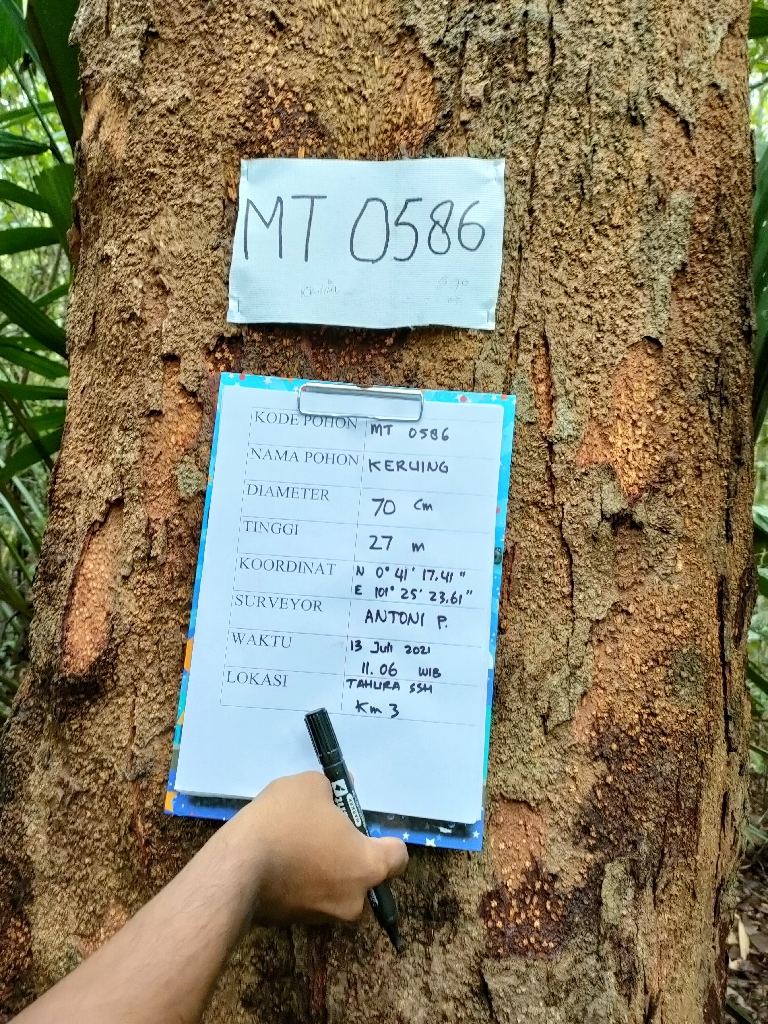 MT 0586
KODE POHON MT 0586
NAMA POHON KERUING
DIAMETER 70 cm
TINGGI 27 m
KOORDINAT N 0° 41' 17.41"
E 101° 25' 23.61"
SURVEYOR ANTONI P.
WAKTU 13 Juli 2021
11.06 WIB
LOKASI TAHURA SSH
Km 3